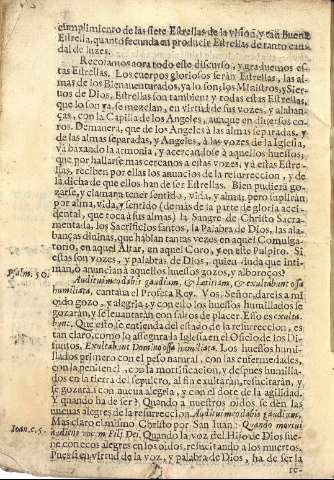 cumplimiento de las siete Estrellas de la vision, y tan Buena
Estrella, quanto fecunda en producir Estrellas de tanto cau-
dal de luzes.
Recojamos aora todo este discurso, y graduemos es-
tas Estrellas. Los cuerpos gloriosos seràn Estrellas, las al-
mas de los Bienaventurados, ya lo son; los Ministros, y Sier-
vos de Dios, Estrellas son tambien; y todas estas Estrellas,
que lo son ya, se mezclan, en virtud de sus vozes, y alaban-
ças, con la Capilla de los Angeles, aunque en diversos co-
ros. Demanera, que de los Angeles à las almas separadas, y
de las almas separadas, y Angeles, à las vozes de la Iglesia,
và baxando la armonia, y acercandose à aquellos huessos;
que por hallarse mas cercanos à estas vozes, y à estas Estre-
llas, reciben por ellas los anuncios de la resurreccion, y de
la dicha de que ellos han de ser Estrellas. Bien pudiera go-
zarse, y clamara tener sentido, vida, y alma; pero suplirán
por alma, vida, y sentido (demás de la parte de gloria acci-
dental, que toca à sus almas) la Sangre de Christo Sacra-
mentado, los Sacrificios santos, la Palabra de Dios, las ala-
banças divinas, que hablan tantas vezes en aquel Comulga-
torio, en aquel Altar, en aquel Coro, y en este Pulpito. Si
estas son vozes, y palabras de Dios, quien duda que inti-
man, ò anuncian à aquellos huessos gozos, y alboroços?
Psalm. 50. Auditui meo dabis gaudium, & lætitiam, & exultabunt ossa
humiliata, cantava el Profeta Rey. Vos, Señor, dareis à mi
oido gozo, y alegria; y con ello los huessos humillados se
gozaràn, y se levantaràn con saltos de placer. Esso es exulta-
bunt. Que esto se entienda del estado de la resurreccion, es
tan claro, como lo assegura la Iglesia en el Oficio de los Di-
funtos. Exultabunt Domino ossa humiliata. Los huessos humi-
llados primero con el peso natural, con las enfermedades,
con la penitencia, con la mortificacion, y despues humilla-
dos en la tierra del sepulcro, al fin exultaràn, resucitaràn, y
se gozaràn con nueva alegria, y con el dote de la agilidad.
Y quando ha de ser? Quando à nuestros oidos se dèn las
nuevas alegres de la resurreccion. Auditui meo dabis gaudium.
Mas claro el mismo Christo por San Juan: Quando mortui
Joan. c. 5. audient vocem Filij Dei. Quando la voz del Hijo de Dios sue-
ne con ecos alegres en los oidos, resucitando à los muertos.
Pues si en virtud de la voz, y palabra de Dios, ha de ser la